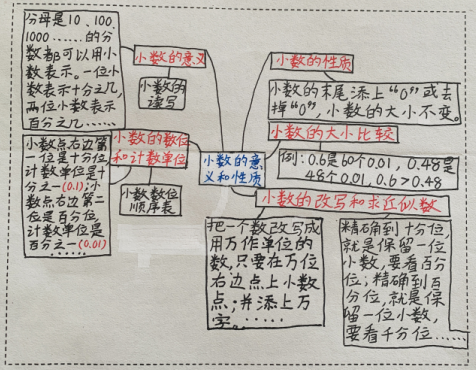 分母是10、100
1000……的分
数都可以用小
数表示。一位小
数表示十分之几,
两位小数表示
百分之几……
小数的意义
小数的
读写
小数点右边第
一位是十分位,
计数单位是十
分之一(0.1);小
数点右边第二
位是百分位,
计数单位是
百分之一(0.01)
小数的数位
和计数单位
小数数位
顺序表
小数的意
义和性质
小数的性质
小数的末尾添上“0”或去
掉“0”,小数的大小不变。
小数的大小比较
例:0.6是60个0.01,0.48是
48个0.01,0.6>0.48
小数的改写和求近似数
把一个数改写成
用万作单位的
数,只要在万位
右边点上小数
点;并添上万
字。……
精确到十分位,
就是保留一位
小数,要看百分
位;精确到百
分位,就是保
留一位小数,
要看千分位……